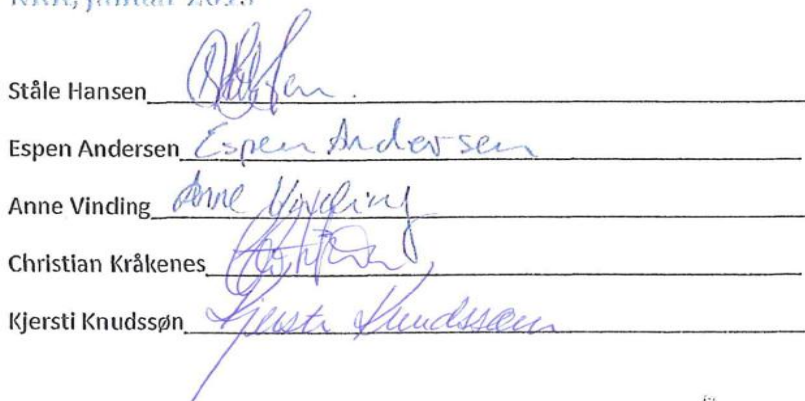 Januar 2015
Ståle Hansen
Espen Andersen Espen Andersen
Anne Vinding Anne Vinding
Christian Kråkenes
Kjersti Knudssøn Kjersti Knudssøn